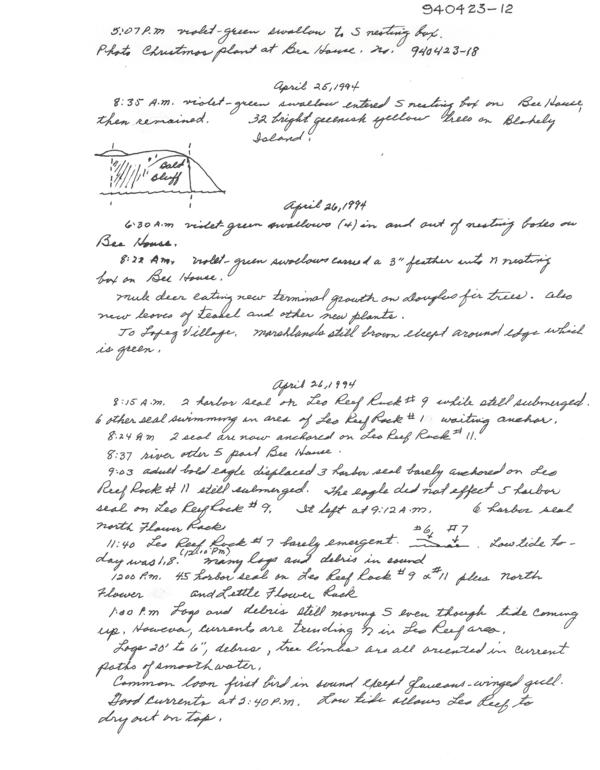 940423-12
5:07 P.M violet-green swallow to S nesting box.
Photo Christmas plant at Bee House. no. 940423-18
April 25, 1994
8:35 A.M. violet-green swallow entered S nesting box on Bee House,
then remained. 32 bright greenish yellow trees on Blakely
Island.
Bald
Bluff
April 26, 1994
6:30 A.m violet-green swallows (4) in and out of nesting boxes on
Bee House.
8:22 A.m. violet-green swallows carried a 3" feather into N nesting
box on Bee House.
Mule deer eating new terminal growth on douglas fir trees. Also
new leaves of teasel and other new plants.
To Lopez Village. Marshlands still brown except around edge which
is green.
April 26, 1994
8:15 A.M. 2 harbor seal on Leo Reef Rock # 9 while still submerged.
6 other seal swimming in area of Leo Reef Rock # 1 waiting anchor.
8:24 Am 2 seal are now anchored on Leo Reef Rock # 11.
8:37 river otter S past Bee House.
9:03 adult bald eagle displaced 3 harbor seal barely anchored on Leo
Reef Rock # 11 still submerged. The eagle did not effect 5 harbor
seal on Leo Reef Rock # 9. It left at 9:12 A.M. 6 harbor seal
North Flower Rock
#6, #7
11:40 Leo Reef Rock # 7 barely emergent. Low tide to-
day was 1.8. (12:10 Pm) many logs and debris in sound
1200 P.m. 45 harbor seal on Leo Reef Rock # 9 & # 11 plus North
Flower and Little Flower Rock
1:00 P.m Logs and debris still moving S even though tide coming
up. However, currents are trending N in Leo Reef area.
Logs 20' to 6", debris, tree limbs are all oriented in current
paths of smooth water.
Common loon first bird in sound except glaucous-winged gull.
Good currents at 2:40 P.M. Low tide allows Leo Reef to
dry out on top.